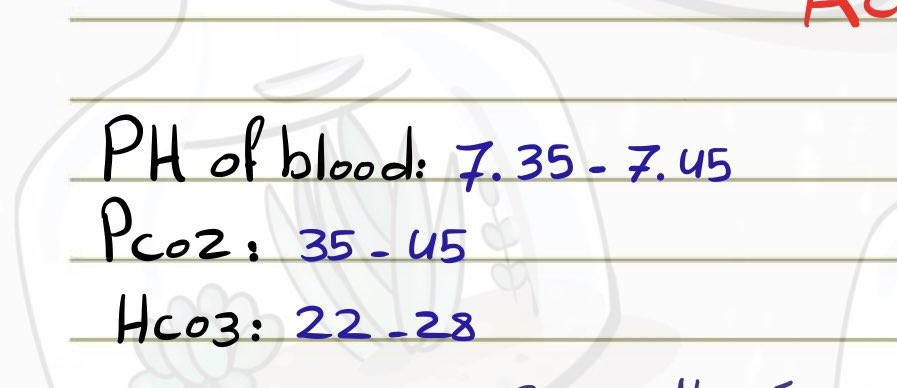 PH of blood: 7.35 - 7.45
Pco2: 35 - 45
Hco3: 22 - 28